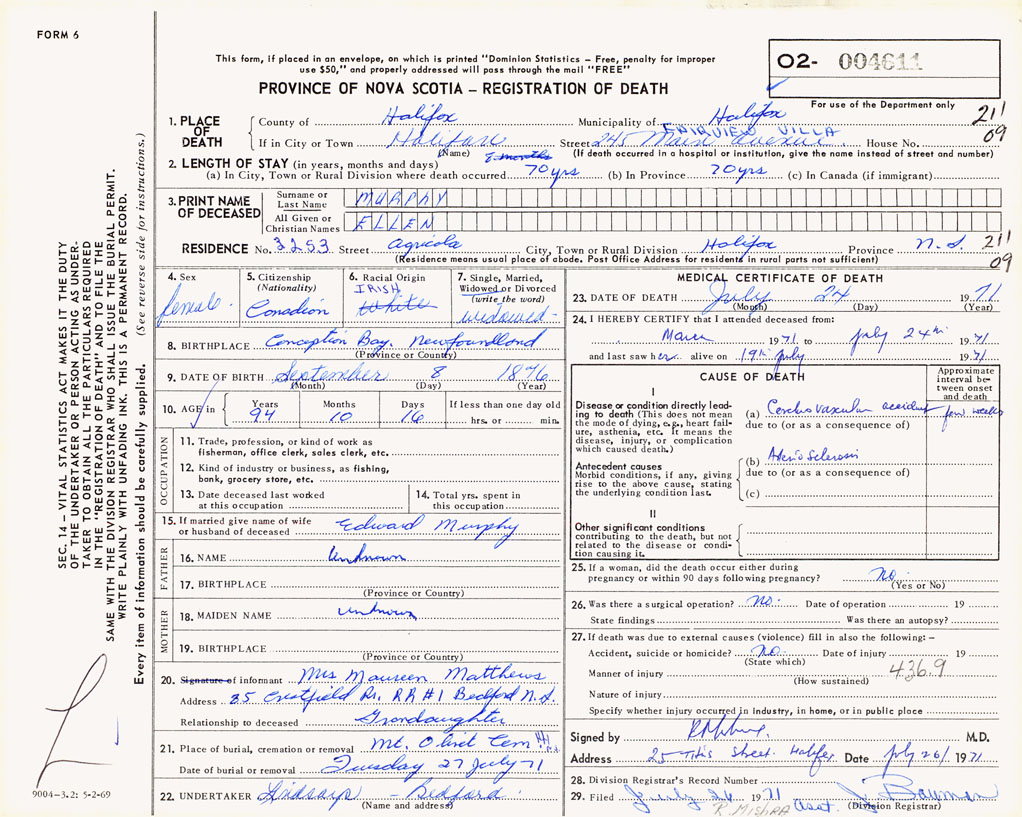 FORM 6
This form, if placed in an envelope, on which is printed "Dominion Statistics – Free, penalty for improper
use $50," and properly addressed will pass through the mail "FREE"
O2- 004611
PROVINCE OF NOVA SCOTIA – REGISTRATION OF DEATH
For use of the Department only
211
09
1. PLACE OF DEATH
County of Halifax Municipality of Halifax
FAIRVIEW VILLA
If in City or Town Halifax Street 245 Main Avenue House No.
(Name) (If death occurred in a hospital or institution, give the name instead of street and number)
2. LENGTH OF STAY (in years, months and days) 8 months
(a) In City, Town or Rural Division where death occurred 70 yrs (b) In Province 70 yrs (c) In Canada (if immigrant)
3. PRINT NAME OF DECEASED
Surname or Last Name MURPHY
All Given or Christian Names ELLEN
RESIDENCE No. 3253 Street Agricola City, Town or Rural Division Halifax Province N.S. 211
09
(Residence means usual place of abode. Post Office Address for residents in rural parts not sufficient)
4. Sex
female
5. Citizenship
(Nationality)
Canadian
6. Racial Origin
IRISH
White
7. Single, Married,
Widowed or Divorced
(write the word)
widowed
8. BIRTHPLACE Conception Bay, Newfoundland
(Province or County)
9. DATE OF BIRTH September 8 1876
(Month) (Day) (Year)
10. AGE in
Years Months Days If less than one day old
94 10 16 hrs. or min.
OCCUPATION
11. Trade, profession, or kind of work as
fisherman, office clerk, sales clerk, etc.
12. Kind of industry or business, as fishing,
bank, grocery store, etc.
13. Date deceased last worked
at this occupation
14. Total yrs. spent in
this occupation
15. If married give name of wife
or husband of deceased Edward Murphy
FATHER
16. NAME Unknown
17. BIRTHPLACE
(Province or Country)
MOTHER
18. MAIDEN NAME unknown
19. BIRTHPLACE
(Province or Country)
20. Signature of informant Mrs Maureen Matthews
Address 35 Crestfield Dr. RR #1 Bedford N.S.
Relationship to deceased Grandaughter
21. Place of burial, cremation or removal Mt. Olivet Cem
Date of burial or removal Tuesday 27 July 71
22. UNDERTAKER Lindsays – Bedford
(Name and address)
MEDICAL CERTIFICATE OF DEATH
23. DATE OF DEATH July 24 1971
(Month) (Day) (Year)
24. I HEREBY CERTIFY that I attended deceased from:
March 1971 to July 24th 1971
and last saw her alive on 19th July 1971
CAUSE OF DEATH
Approximate
interval be-
tween onset
and death
I
Disease or condition directly lead-
ing to death (This does not mean
the mode of dying, e.g., heart fail-
ure, asthenia, etc. It means the
disease, injury, or complication
which caused death.)
(a) Cerebro vascular accident few weeks
due to (or as a consequence of)
Antecedent causes
Morbid conditions, if any, giving
rise to the above cause, stating
the underlying condition last.
(b) Arterio Sclerosis
due to (or as a consequence of)
(c)
II
Other significant conditions
contributing to the death, but not
related to the disease or condi-
tion causing it.
25. If a woman, did the death occur either during
pregnancy or within 90 days following pregnancy? No.
(Yes or No)
26. Was there a surgical operation? no. Date of operation 19
State findings Was there an autopsy?
27. If death was due to external causes (violence) fill in also the following: –
Accident, suicide or homicide? No Date of injury 19
(State which)
Manner of injury 436.9
(How sustained)
Nature of injury
Specify whether injury occurred in industry, in home, or in public place
Signed by M.D.
Address 25 Street Halifax Date July 26 1971
28. Division Registrar's Record Number
29. Filed July 26 1971 Asst. J. Bauman
(Division Registrar)
R. MISHRA
SEC. 14 – VITAL STATISTICS ACT MAKES IT THE DUTY
OF THE UNDERTAKER OR PERSON ACTING AS UNDER-
TAKER TO OBTAIN ALL THE PARTICULARS REQUIRED
IN THE "REGISTRATION OF DEATH" AND TO FILE THE
SAME WITH THE DIVISION REGISTRAR WHO SHALL ISSUE THE BURIAL PERMIT.
WRITE PLAINLY WITH UNFADING INK. THIS IS A PERMANENT RECORD.
Every item of information should be carefully supplied. (See reverse side for instructions.)
9004–3.2: 5-2-69